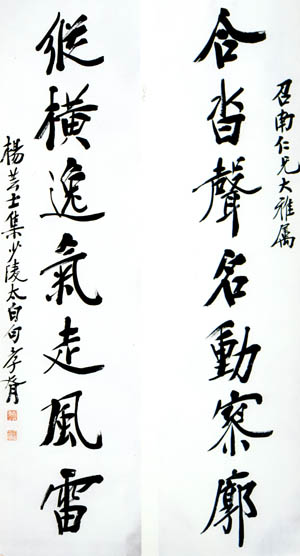 召南仁兄大雅属
合沓聲名動寥廓
縱橫逸氣走風雷
楊芸士集少陵太白句孝胥